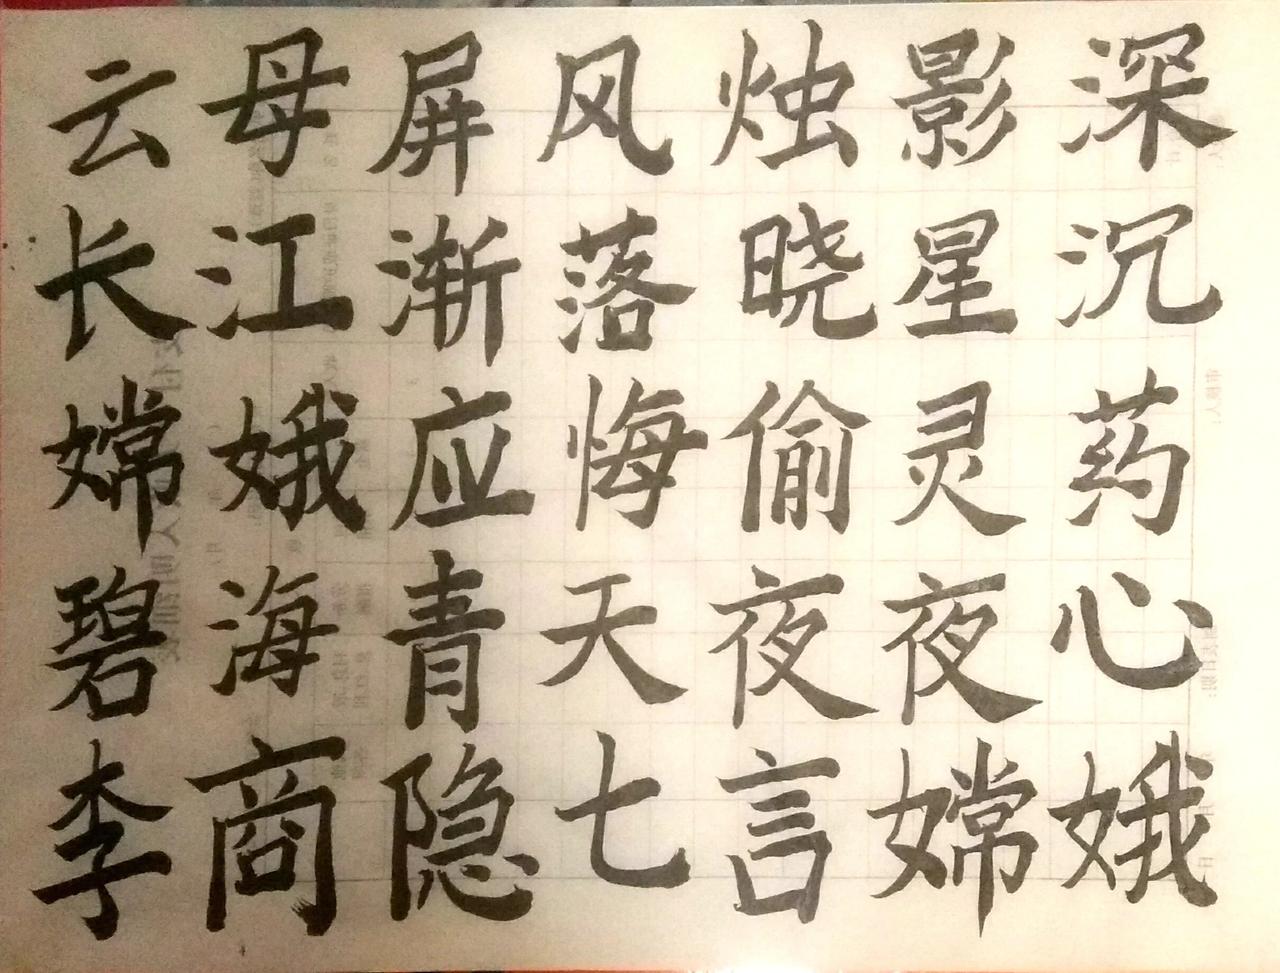 云母屏风烛影深
长江渐落晓星沉
嫦娥应悔偷灵药
碧海青天夜夜心
李商隐七言嫦娥